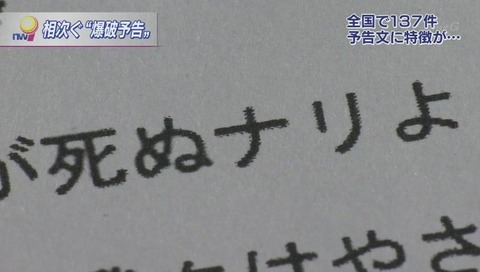 nw9
相次ぐ"爆破予告„
全国で137件
予告文に特徴が…
が死ぬナリよ
はやさ